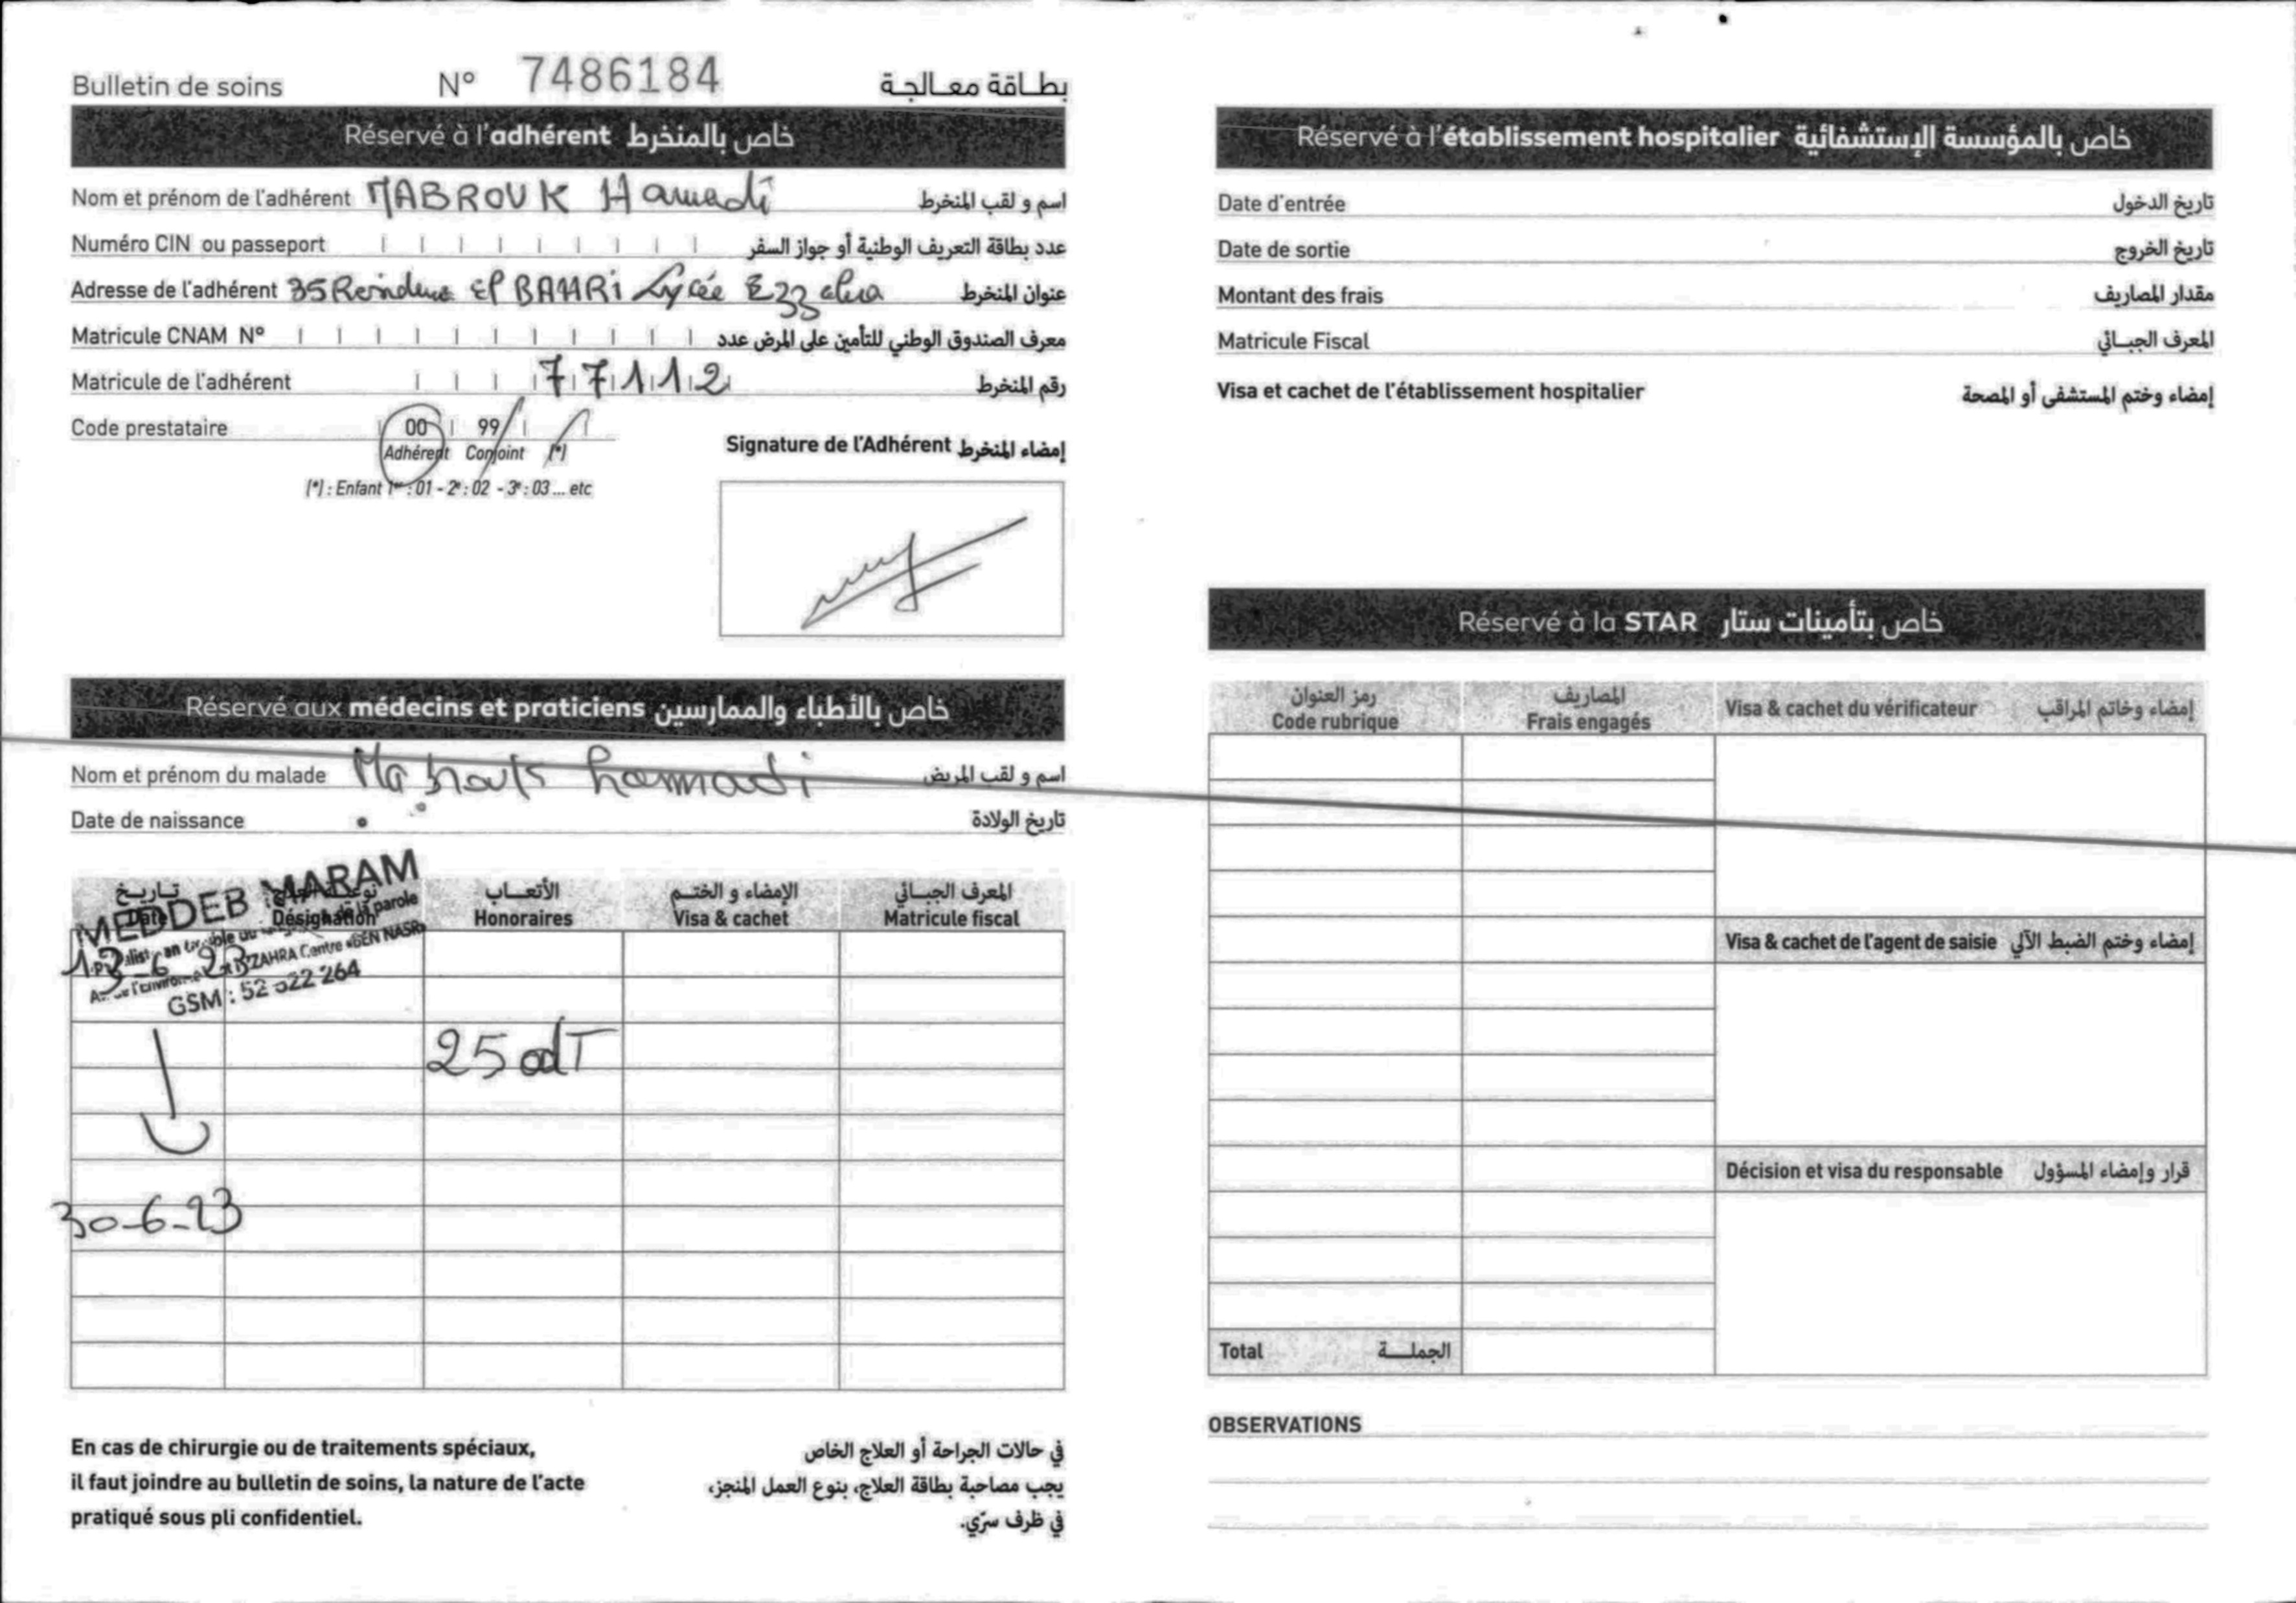 Bulletin de soins N° 7486184 بطاقة معالجة
Réservé à l'adhérent خاص بالمنخرط
Nom et prénom de l'adhérent MABROUK Hamadi اسم و لقب المنخرط
Numéro CIN ou passeport عدد بطاقة التعريف الوطنية أو جواز السفر
Adresse de l'adhérent 35 Residence El BAHRi Lycée Ezzahra عنوان المنخرط
Matricule CNAM N° معرف الصندوق الوطني للتأمين على المرض عدد
Matricule de l'adhérent 77112 رقم المنخرط
Code prestataire 00 99
Adhérent Conjoint (*)
(*) : Enfant 1er : 01 - 2e : 02 - 3e : 03 ... etc
Signature de l'Adhérent إمضاء المنخرط
Réservé aux médecins et praticiens خاص بالأطباء والممارسين
Nom et prénom du malade Mabrouk hammadi اسم و لقب المريض
Date de naissance تاريخ الولادة
تاريخ الأتعاب الإمضاء و الختم المعرف الجبائي
Date Désignation Honoraires Visa & cachet Matricule fiscal
MEDDEB MARAM
de la parole
EZZAHRA Centre «BEN NASR»
GSM : 52 522 264
13-6-23
25 odT
30-6-23
En cas de chirurgie ou de traitements spéciaux,
il faut joindre au bulletin de soins, la nature de l'acte
pratiqué sous pli confidentiel.
في حالات الجراحة أو العلاج الخاص
يجب مصاحبة بطاقة العلاج، بنوع العمل المنجز،
في ظرف سرّي.
Réservé à l'établissement hospitalier خاص بالمؤسسة الإستشفائية
Date d'entrée تاريخ الدخول
Date de sortie تاريخ الخروج
Montant des frais مقدار المصاريف
Matricule Fiscal المعرف الجبائي
Visa et cachet de l'établissement hospitalier إمضاء وختم المستشفى أو المصحة
Réservé à la STAR خاص بتأمينات ستار
رمز العنوان المصاريف
Code rubrique Frais engagés Visa & cachet du vérificateur إمضاء وخاتم المراقب
Visa & cachet de l'agent de saisie إمضاء وختم الضبط الآلي
Décision et visa du responsable قرار وإمضاء المسؤول
Total الجملة
OBSERVATIONS